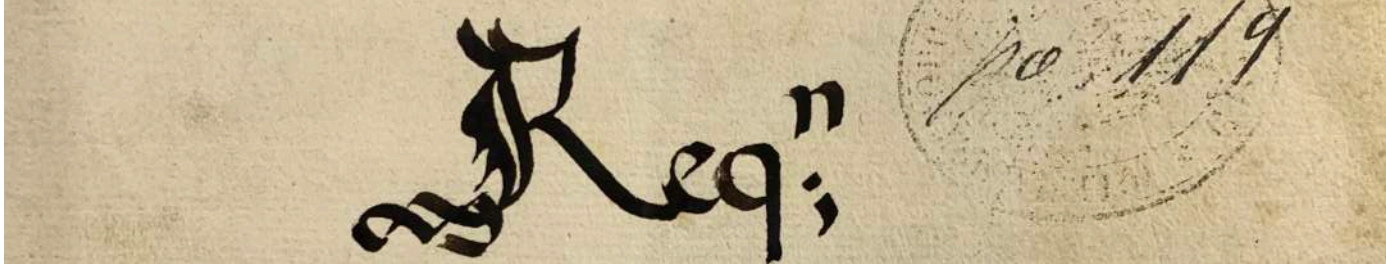 Reqⁿ;
po. 119